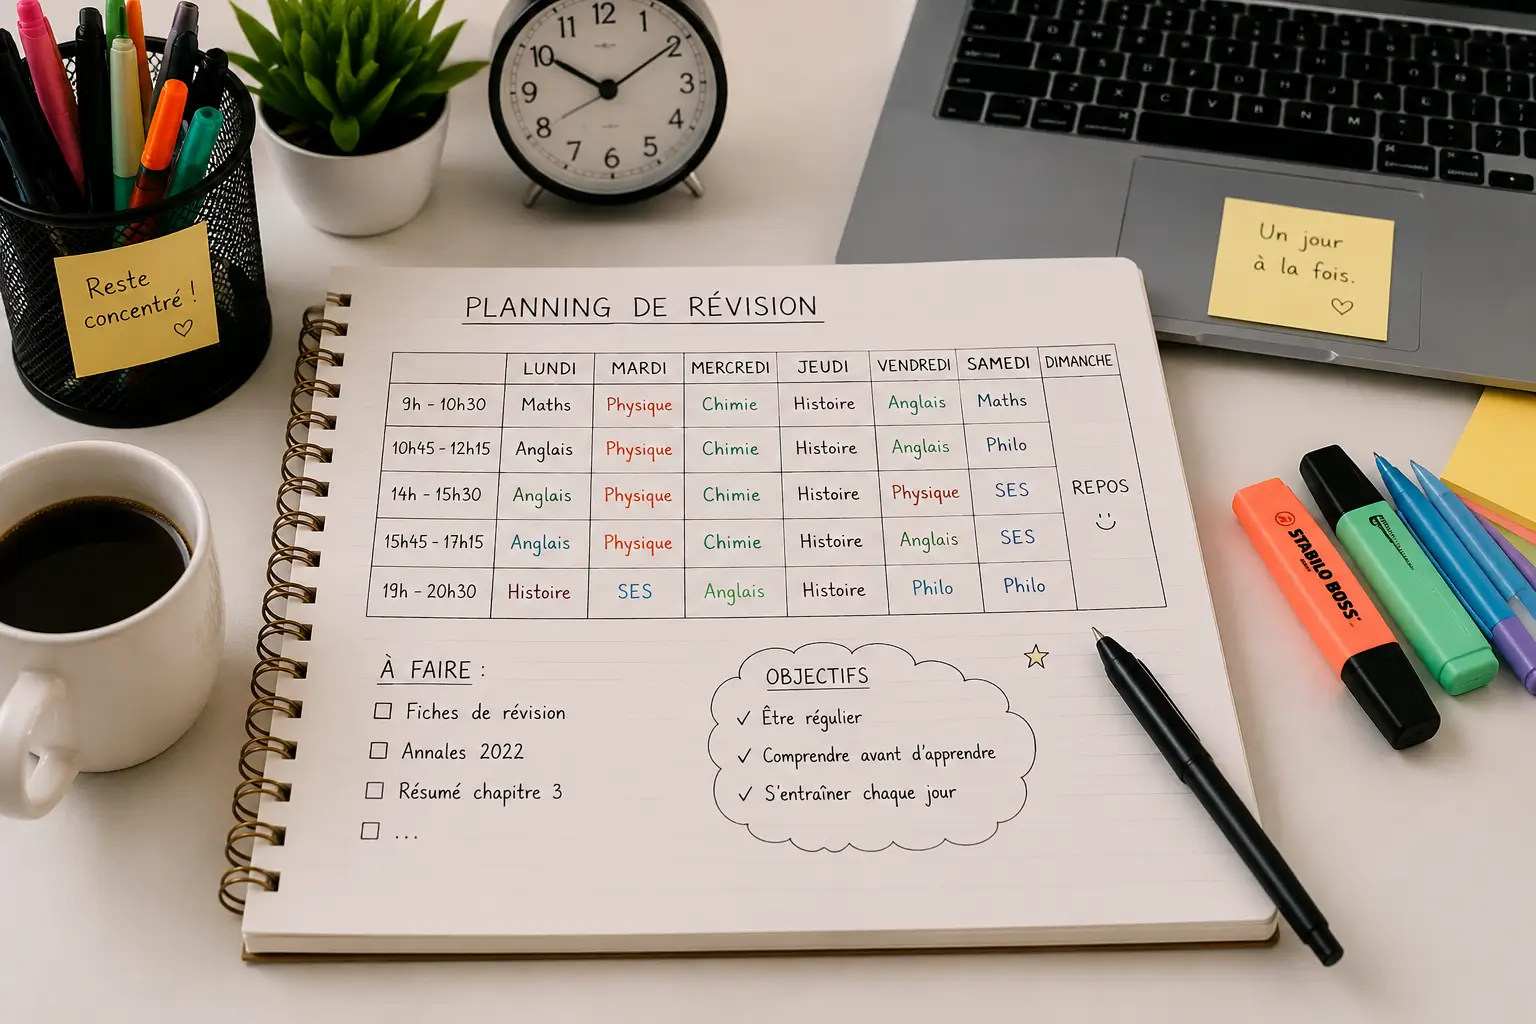 12
11
10
9
8
7
6
5
4
3
2
Reste
concentré !
Un jour
à la fois.
PLANNING DE RÉVISION
LUNDI MARDI MERCREDI JEUDI VENDREDI SAMEDI DIMANCHE
9h - 10h30 Maths Physique Chimie Histoire Anglais Maths
10h45 - 12h15 Anglais Physique Chimie Histoire Anglais Philo
14h - 15h30 Anglais Physique Chimie Histoire Physique SES REPOS
15h45 - 17h15 Anglais Physique Chimie Histoire Anglais SES
19h - 20h30 Histoire SES Anglais Histoire Philo Philo
À FAIRE :
Fiches de révision
Annales 2022
Résumé chapitre 3
...
OBJECTIFS
✓ Être régulier
✓ Comprendre avant d'apprendre
✓ S'entraîner chaque jour
STABILO BOSS